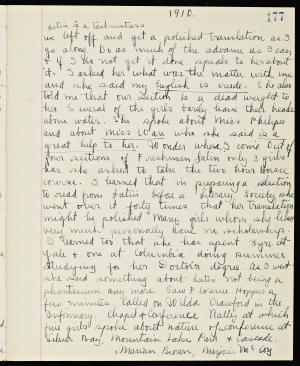 1910.
177
Latin is a taskmistress
we left off and get a polished translation as I
go along. Do as much of the advance as I can
& if I do not get it done speak to her about
it. I asked her what was the matter with me
and she said my English is crude. She also
told me that our section is a dead weight to
her. Several of the girls barely have their heads
above water. She spoke about Miss Phelps
and about Miss who she said is a
great help to her. Wonder where I come. Out of
four sections of Freshman Latin only 3 girls
has she asked to take the two hour Horace
course. I learned that in preparing a selection
to read from Latin before a literary society she
went over it forty times that her translation
might be polished. Many girls whom she likes
very much personally have no scholarship.
I learned too that she has spent 3 yrs. at
Yale & one at Columbia doing summer
studying for her Doctor's degree. As I went
she said something about Latin not being a
phantasium any more. Saw Florence Hopper a
few minutes. Called on Crawford in the
Infirmary. Chapel & Conference Rally at which
five girls spoke about nature of conference at
Silver Bay, Mountain Lake Park & Cascade.
Marian Brown, Marjorie McCoy